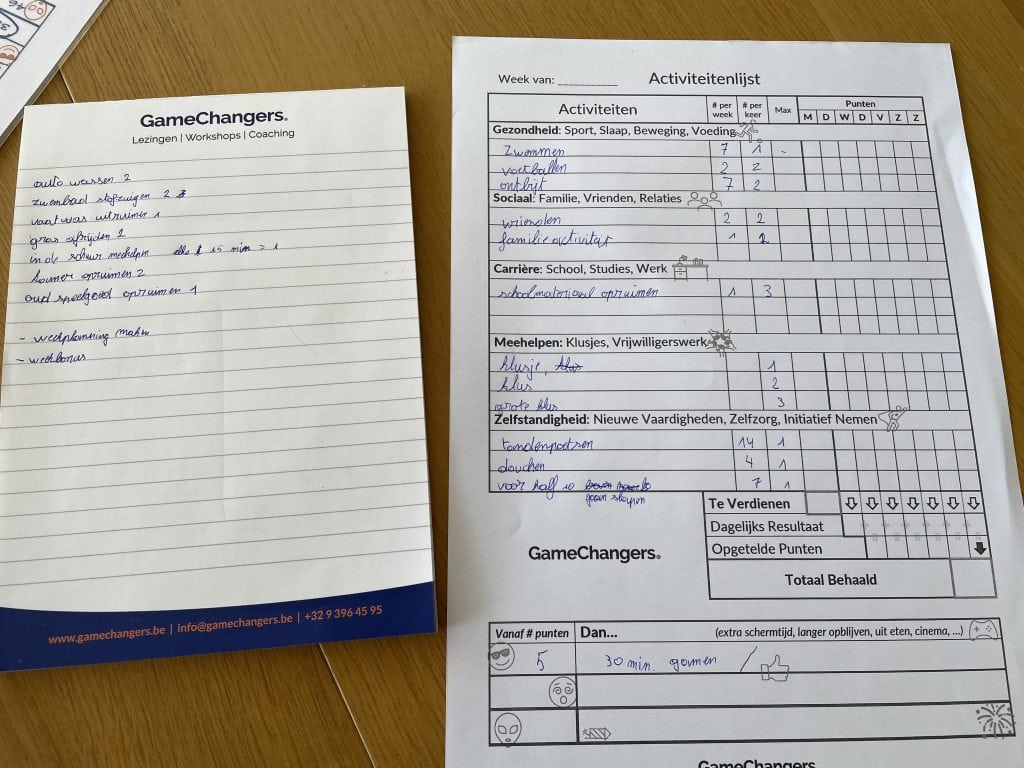 GameChangers.
Lezingen | Workshops | Coaching
auto wassen 2
zwembad stofzuigen 2
vaatwas uitruimen 1
gras afrijden 2
in de schuur meehelpen elke 15 min = 1
kamer opruimen 2
oud speelgoed opruimen 1
- weekplanning maken
- weekbonus
www.gamechangers.be | info@gamechangers.be | +32 9 396 45 95
Week van: ___________ Activiteitenlijst
Activiteiten # per week # per keer Max Punten
M D W D V Z Z
Gezondheid: Sport, Slaap, Beweging, Voeding
zwemmen 7 1 -
voetballen 2 2
ontbijt 7 2
Sociaal: Familie, Vrienden, Relaties
vrienden 2 2
familie activiteit 1 2
Carrière: School, Studies, Werk
schoolmateriaal opruimen 1 3
Meehelpen: Klusjes, Vrijwilligerswerk
klusje, klus 1
klus 2
grote klus 3
Zelfstandigheid: Nieuwe Vaardigheden, Zelfzorg, Initiatief Nemen
tandenpoetsen 14 1
douchen 4 1
voor half 10 7 1
gaan slapen
Te Verdienen
Dagelijks Resultaat
Opgetelde Punten
Totaal Behaald
GameChangers.
Vanaf # punten Dan... (extra schermtijd, langer opblijven, uit eten, cinema, ...)
5 30 min. gamen /
GameChangers